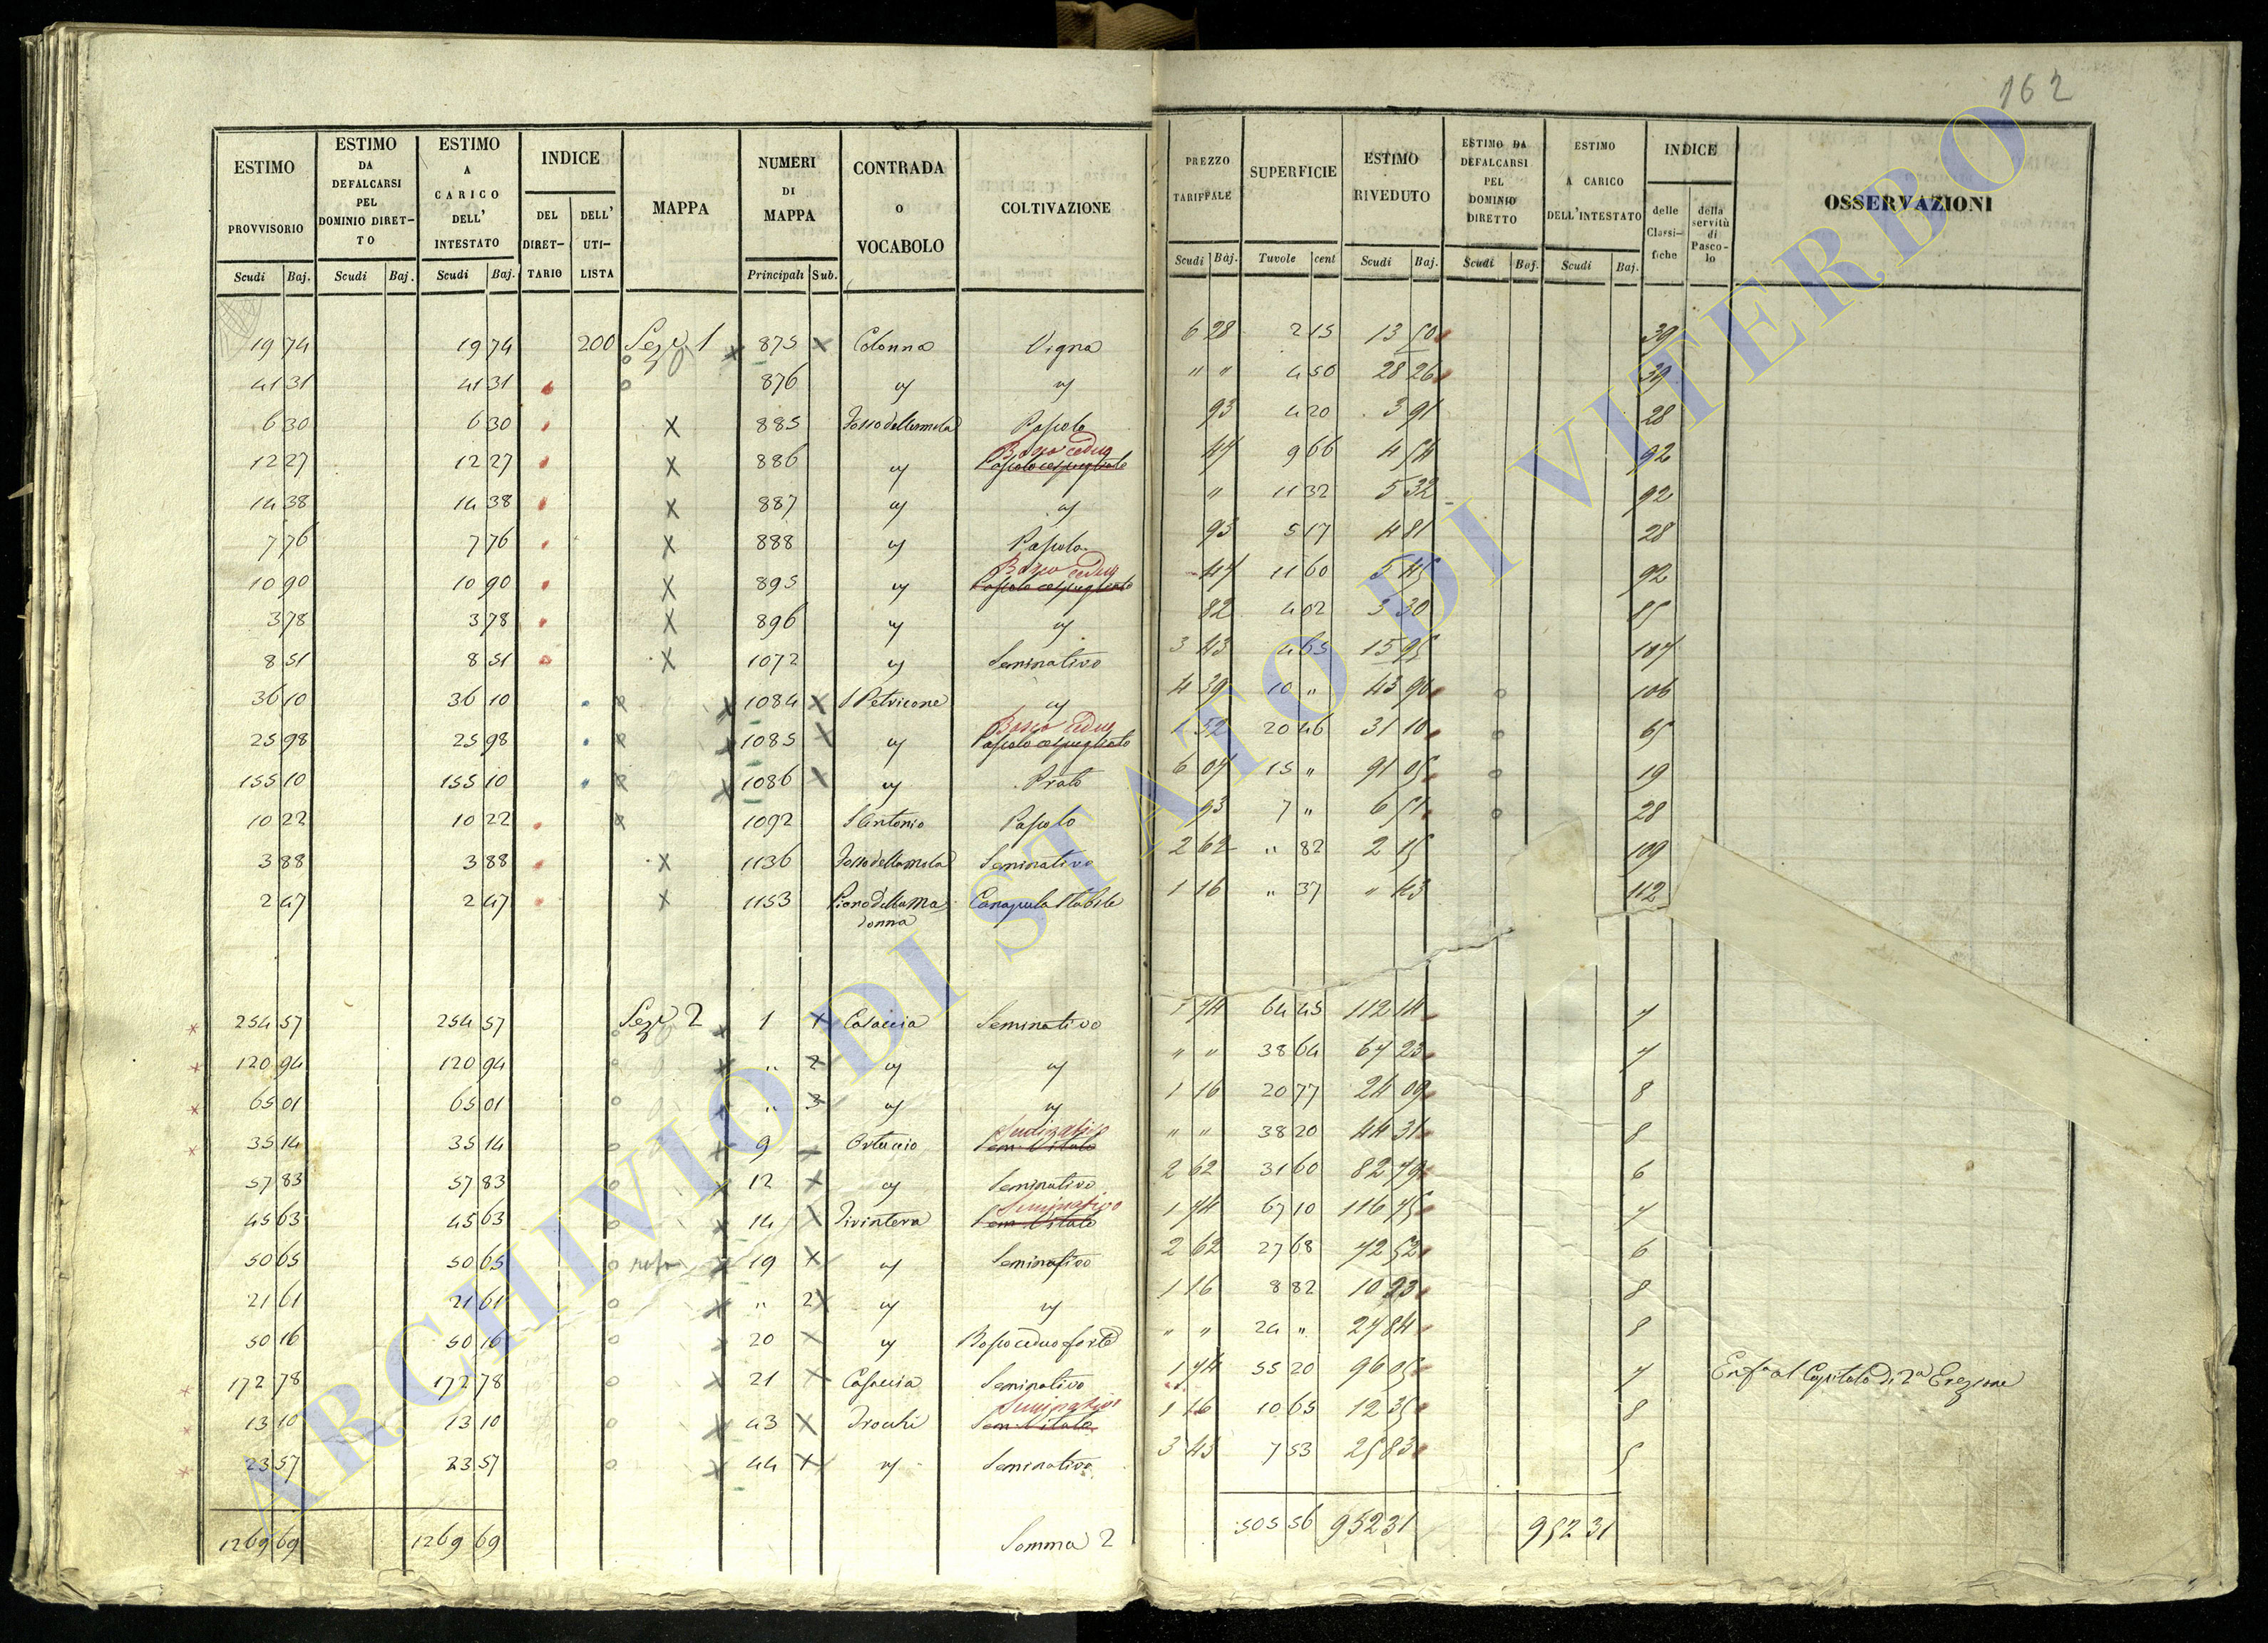 162
ESTIMO PROVVISORIO | ESTIMO DA DEFALCARSI PEL DOMINIO DIRET-TO | ESTIMO A CARICO DELL' INTESTATO | INDICE DEL DIRET-TARIO | DELL' UTI-LISTA | MAPPA | NUMERI DI MAPPA | CONTRADA O VOCABOLO | COLTIVAZIONE | PREZZO TARIFFALE | SUPERFICIE | ESTIMO RIVEDUTO | ESTIMO DA DEFALCARSI PEL DOMINIO DIRETTO | ESTIMO A CARICO DELL'INTESTATO | INDICE delle Classi-fiche | della servitù di Pasco-lo | OSSERVAZIONI
Scudi Baj. | Scudi Baj. | Scudi Baj. | Principali Sub. | Scudi Baj. | Tavole cent | Scudi Baj. | Scudi Baj. | Scudi Baj.
19 74 | 19 74 | 200 | Sez. 1 | 875 | Colonna | Vigna | 6 28 | 2 15 | 13 50 | 39
41 31 | 41 31 | 876 | " | " | " " | 4 50 | 28 26 | 39
6 30 | 6 30 | X | 885 | Fosso della mola | Pascolo | 93 | 4 20 | 3 91 | 28
12 27 | 12 27 | X | 886 | " | Bosco ceduo Pascolo cespugliato | 47 | 9 66 | 4 54 | 92
14 38 | 14 38 | X | 887 | " | " | " | 11 32 | 5 32 | 92
7 76 | 7 76 | X | 888 | " | Pascolo | 93 | 5 17 | 4 81 | 28
10 90 | 10 90 | X | 895 | " | Bosco ceduo Pascolo cespugliato | 47 | 11 60 | 5 45 | 92
3 78 | 3 78 | X | 896 | " | " | 82 | 4 02 | 3 30 | 85
8 51 | 8 51 | X | 1072 | " | Seminativo | 3 43 | 4 65 | 15 95 | 107
36 10 | 36 10 | 1084 X | S Petricone | " | 4 39 | 10 " | 43 90 | 106
25 98 | 25 98 | 1085 X | " | Bosco Ceduo Pascolo cespugliato | 1 52 | 20 46 | 31 10 | 65
155 10 | 155 10 | 1086 X | " | Prato | 6 07 | 15 " | 91 05 | 19
10 22 | 10 22 | 1092 | S Antonio | Pascolo | 93 | 7 " | 6 51 | 28
3 88 | 3 88 | X | 1136 | Fosso della mola | Seminativo | 2 62 | " 82 | 2 15 | 109
2 47 | 2 47 | X | 1153 | Piano della Ma | Canapula Stabile | 1 16 | " 37 | " 43 | 112
donna
254 57 | 254 57 | Sez. 2 | 1 X | Casaccia | Seminativo | 1 74 | 64 45 | 112 14 | 7
120 94 | 120 94 | " 2 | " | " | " " | 38 64 | 67 23 | 7
65 01 | 65 01 | " 3 | " | " | 1 16 | 20 77 | 24 09 | 8
35 14 | 35 14 | 9 X | Ortaccio | Seminativo Sem Vitato | " " | 38 20 | 44 31 | 8
57 83 | 57 83 | 12 X | " | Seminativo | 2 62 | 31 60 | 82 79 | 6
45 63 | 45 63 | 14 X | Seminativo Sem Vitato | 1 74 | 67 10 | 116 75 | 7
50 65 | 50 65 | 19 X | " | Seminativo | 2 62 | 27 68 | 72 52 | 6
21 61 | 21 61 | " 2X | " | " | 1 16 | 8 82 | 10 23 | 8
50 16 | 50 16 | 20 X | " | Bosco ceduo forte | " " | 24 " | 27 84 | 8
172 78 | 172 78 | 21 X | Casaccia | Seminativo | 1 74 | 55 20 | 96 05 | 7 | Enf al Capitolo di 2a Erezione
13 10 | 13 10 | 43 X | Trocchi | Seminativo Sem Vitato | 1 16 | 10 65 | 12 35 | 8
23 57 | 23 57 | 44 X | " | Seminativo | 3 43 | 7 53 | 25 83 | 5
1269 69 | 1269 69 | Somma 2 | 505 56 | 952 31 | 952 31
ARCHIVIO DI STATO DI VITERBO